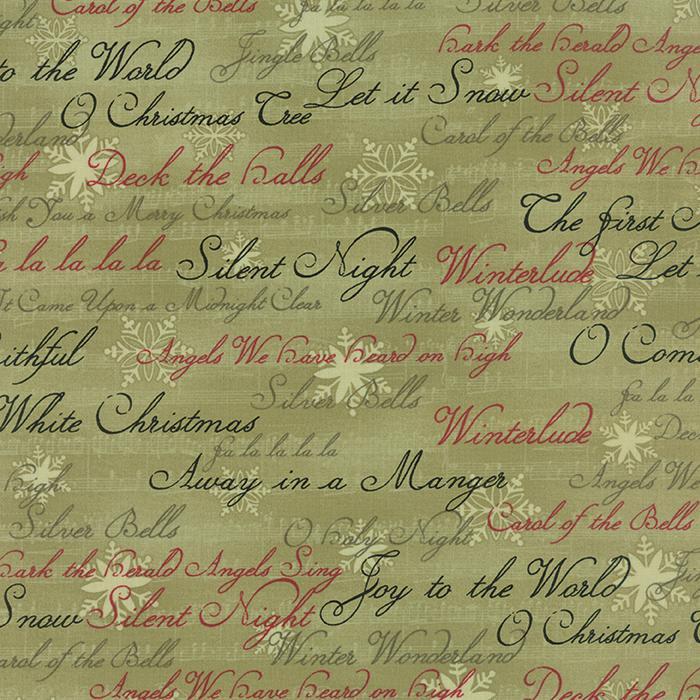 Carol of the Bells fa la la la la Silver Bells
Jingle Bells hark the herald Ange
to the World Let it Snow Silent N
O Christmas Tree Carol of the Bells
derland
igh Deck the halls Angels We h
sh You a Merry Christmas Silver Bells The first
a la la la la Silent Night Winterlude Let
It Came Upon a Midnight Clear Winter Wonderland
aithful Angels We have heard on high O Com
Silver Bells fa la la
White Christmas Winterlude Dec
fa la la la la
high Away in a Manger Angels We
Silver Bells O holy Night Carol of the Bells
hark the herald Angels Sing Joy to the World
Snow Silent Night O Christmas
arol of the Bells Winter Wonderland
Angels We have heard on high Deck the h